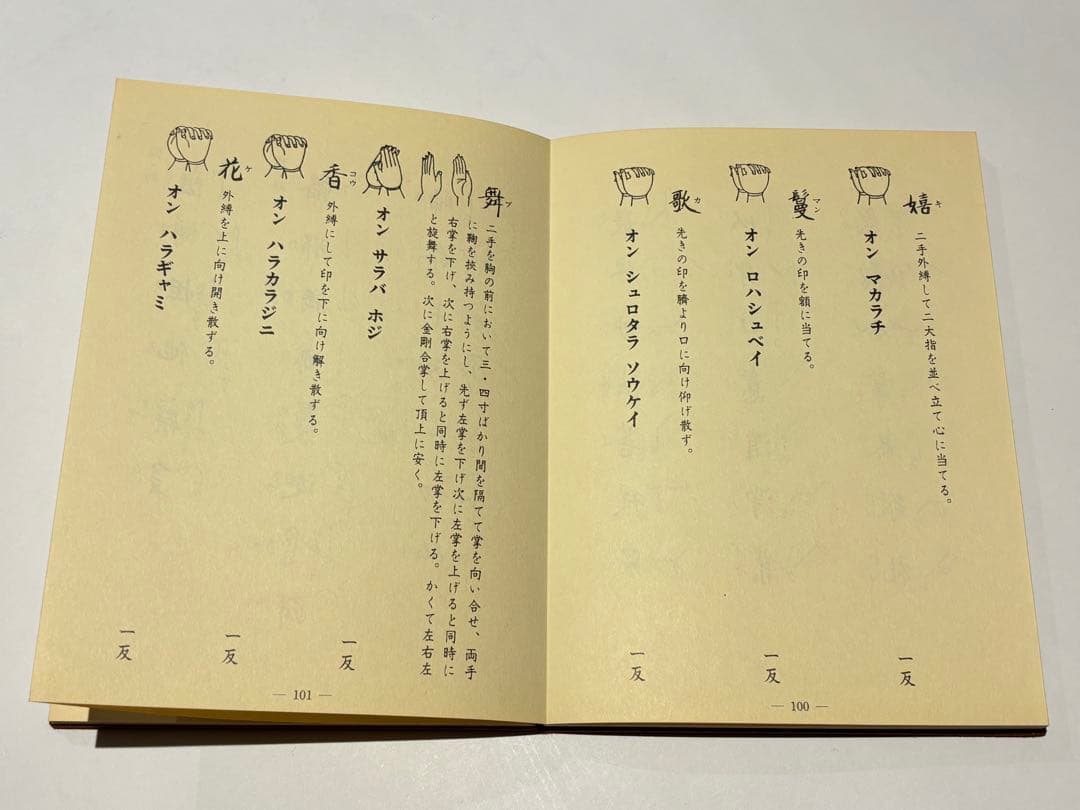 嬉キ
二手外縛して二大指を並べ立て心に当てる。
オン マカラチ
一反
鬘マン
先きの印を額に当てる。
オン ロハシュベイ
一反
歌カ
先きの印を臍より口に向け仰げ散ず。
オン シュロタラ ソウケイ
一反
— 100 —
舞ブ
二手を胸の前において三・四寸ばかり間を隔てて掌を向い合せ、両手
に鞠を挟み持つようにし、先ず左掌を下げ次に左掌を上げると同時に
右掌を下げ、次に右掌を上げると同時に左掌を下げる。かくて左右左
と旋舞する。次に金剛合掌して頂上に安く。
オン サラバ ホジ
一反
香コウ
外縛にして印を下に向け解き散ずる。
オン ハラカラジニ
一反
花ケ
外縛を上に向け開き散ずる。
オン ハラギャミ
一反
— 101 —